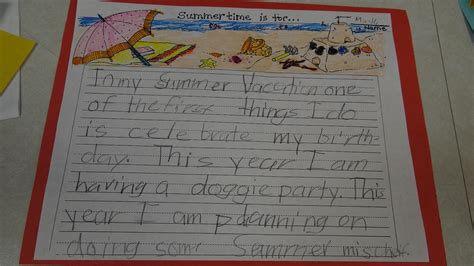 Summertime is for...
Name
In my Summer Vacation one
of the first things I do
is celebrate my birth-
day. This year I am
having a doggie party. This
year I am planning on
doing some Summer